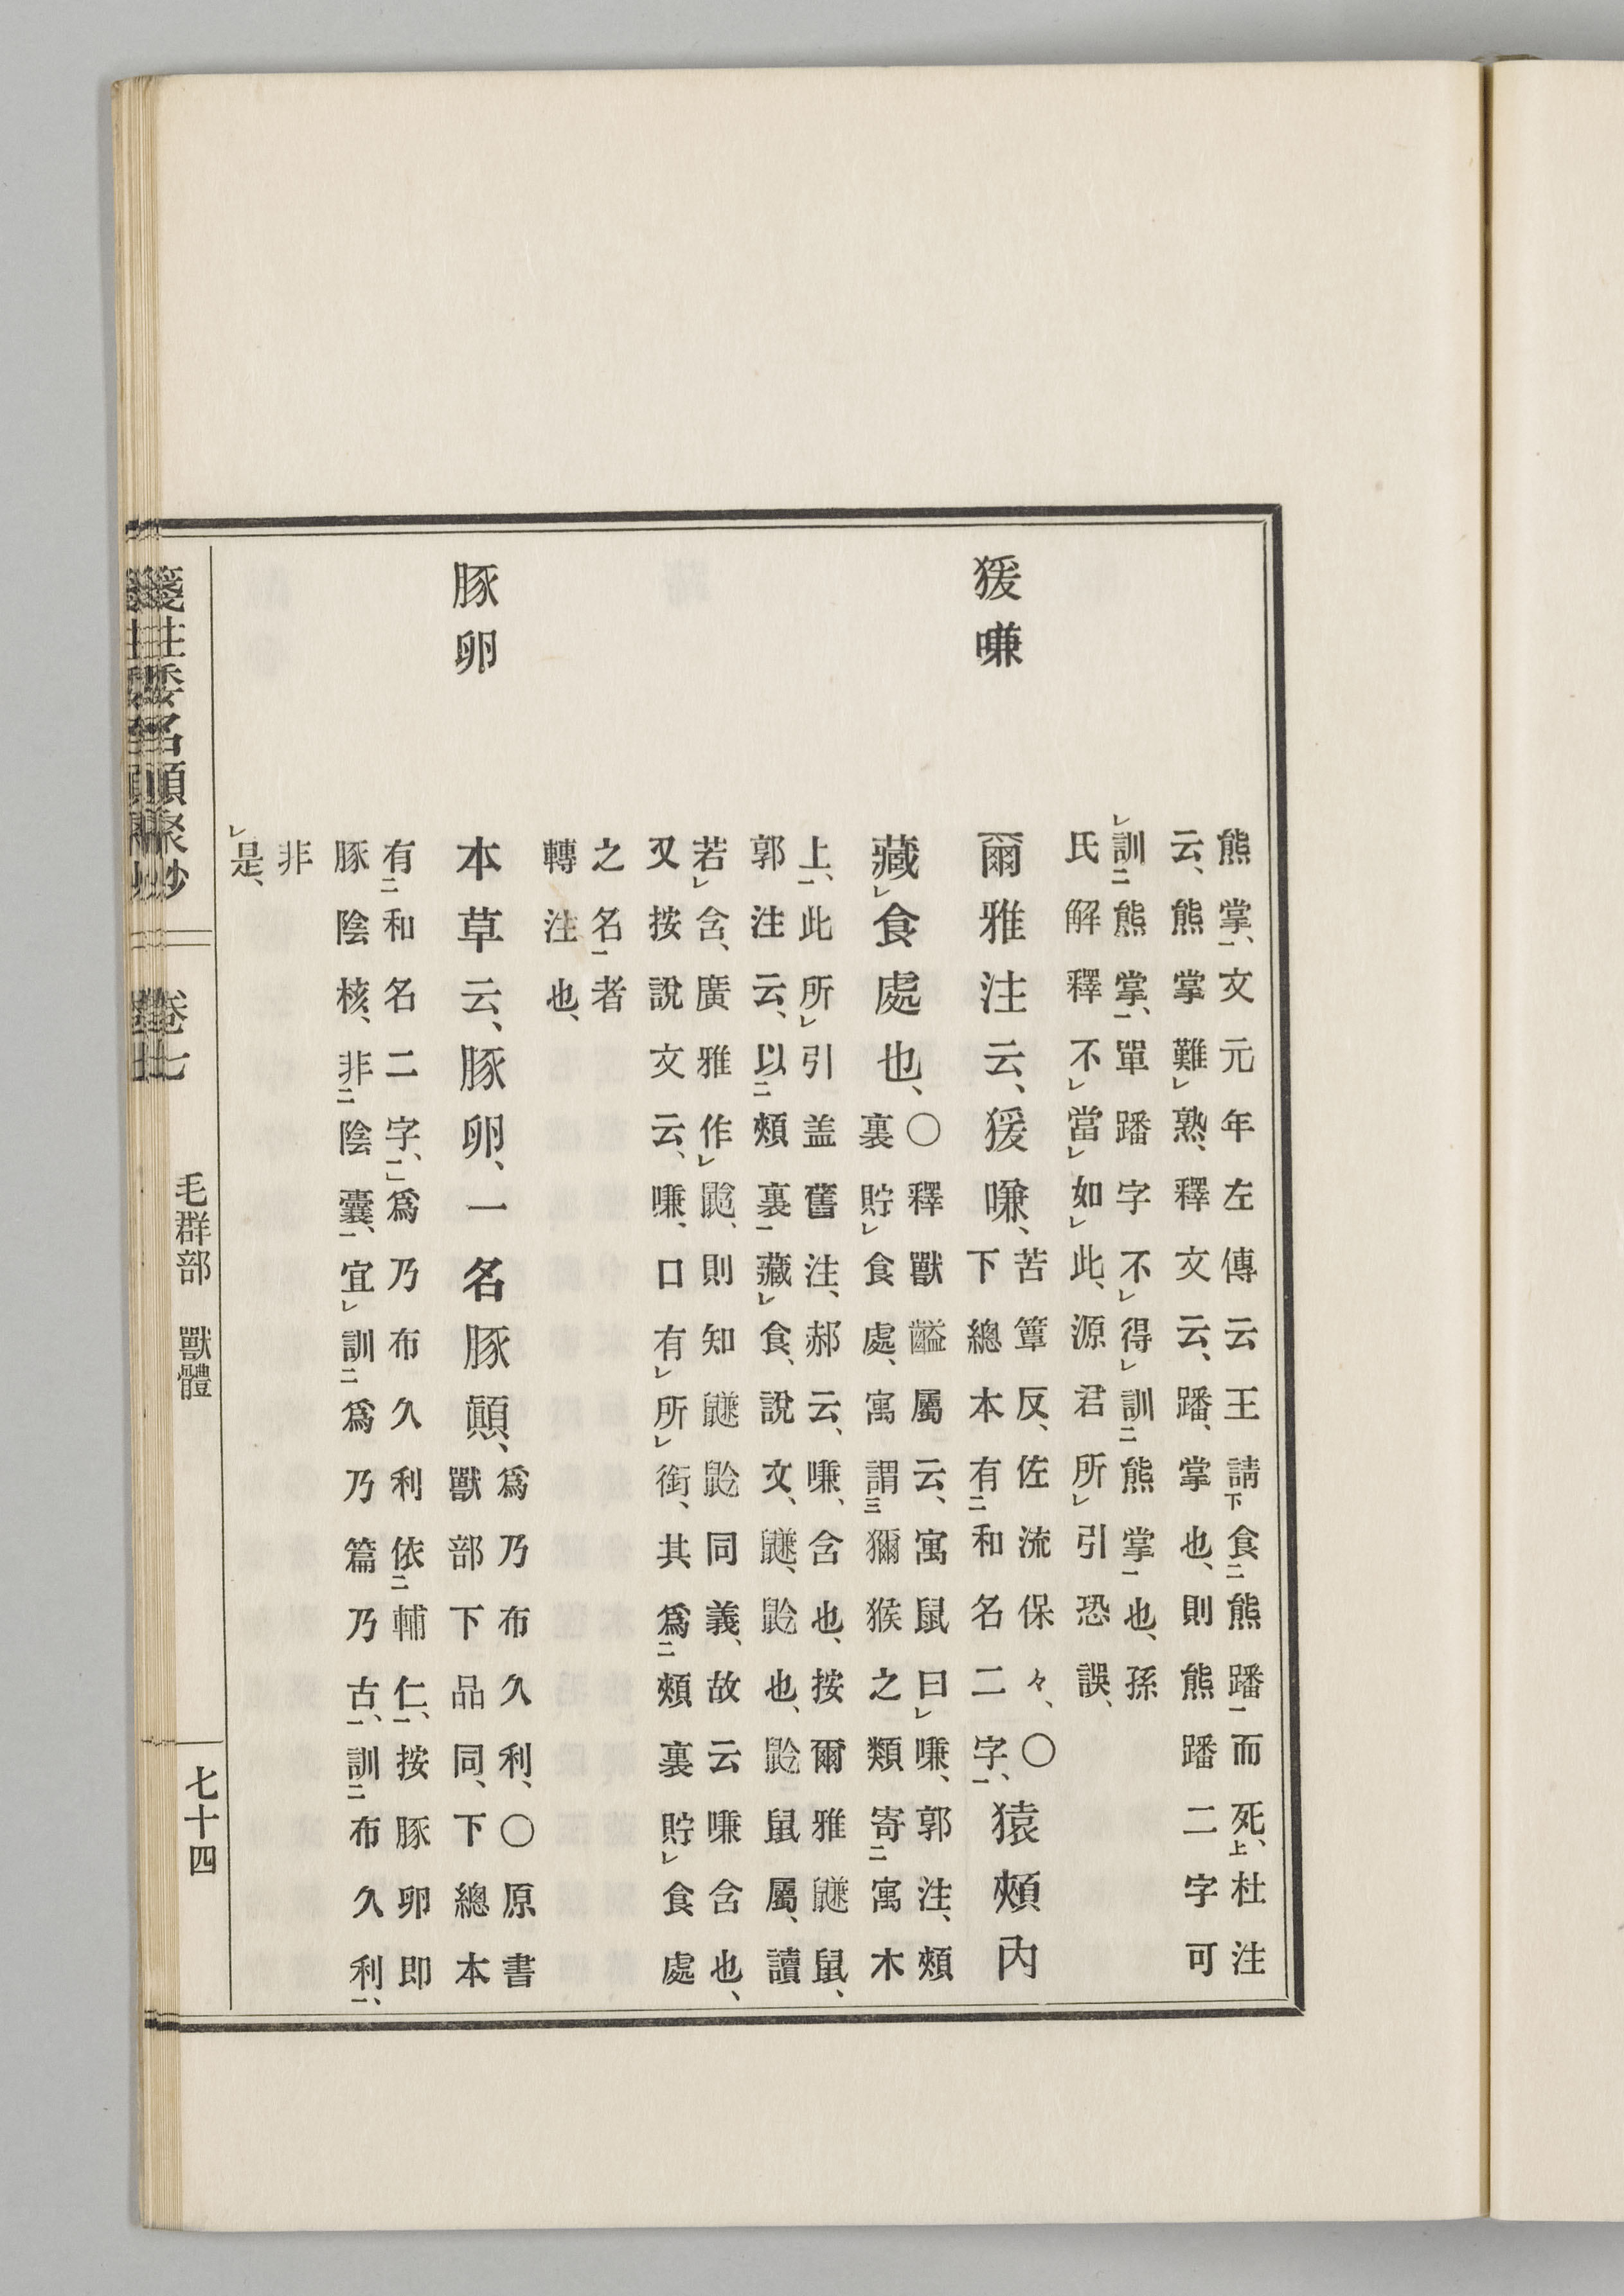 熊掌、文元年左傳云王請食熊蹯而死、杜注
云、熊掌難熟、釋文云、蹯、掌也、則熊蹯二字可
訓熊掌、單蹯字不得訓熊掌也、孫
氏解釋不當如此、源君所引恐誤、
猨嗛
爾雅注云、猨嗛、
苦簟反、佐流保々、○
下總本有和名二字、
猿頰內
藏食處也、
○釋獸齸屬云、寓鼠曰嗛、郭注、頰
裏貯食處、寓謂獼猴之類寄寓木
上、此所引盖舊注、郝云、嗛、含也、按爾雅鼸鼠、
郭注云、以頰裏藏食、說文、鼸、䶃也、䶃鼠屬、讀
若含、廣雅作䶃、則知鼸䶃同義、故云嗛含也、
又按說文云、嗛、口有所銜、其爲頰裏貯食處
之名者
轉注也、
豚卵
本草云、豚卵、一名豚顚、
爲乃布久利、○原書
獸部下品同、下總本
有和名二字、爲乃布久利依輔仁、按豚卵即
豚陰核、非陰囊、宜訓爲乃篇乃古、訓布久利、
非
是、
箋注倭名類聚抄 卷七 毛群部 獸體 七十四